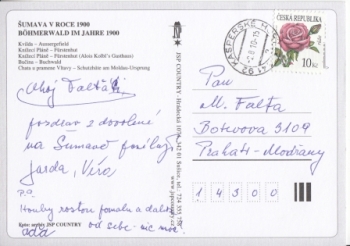 ŠUMAVA V ROCE 1900
BÖHMERWALD IM JAHRE 1900
Kvilda – Aussergefield
Knížecí Pláně – Fürstenhut
Knížecí Pláně – Fürstenhut (Alois Kolbl's Gasthaus)
Bučina – Buchwald
Chata u pramene Vltavy – Schutzhütte am Moldau-Ursprung
Ahoj Falťáci
pozdrav z dovolené
na Šumavě posílají
Jarda, Věra
P.S.
Houby rostou pomalu a daleko
od sebe - nic moc
Foto: archiv JSP COUNTRY
JSP COUNTRY
KAŠPERSKÉ H
ČESKÁ REPUBLIKA
10 Kč
Pan
M. Falta
Botevova 3109
Praha 4 - Modřany
14300